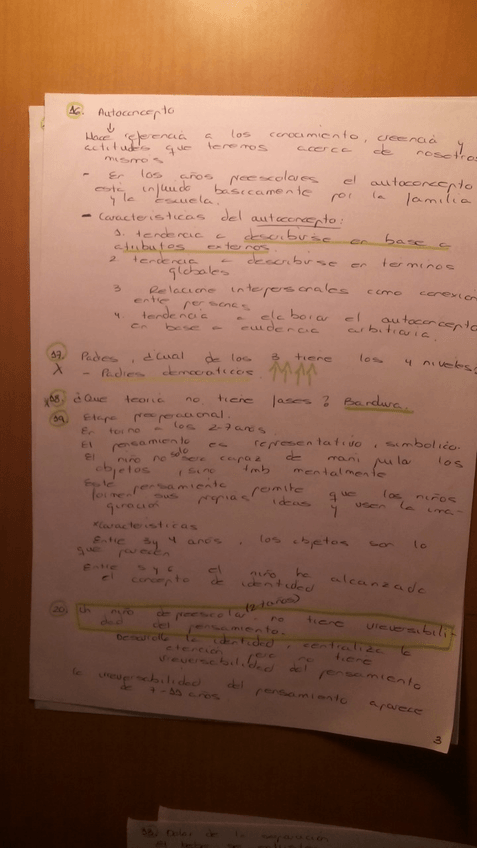 16. Autoconcepto
↓
Hace referencia a los conocimiento, creencia y
actitudes que tenemos acerca de nosotros
mismos
- En los años preescolares el autoconcepto
está influido basicamente por la familia
y la escuela.
- Caracteristicas del autoconcepto:
1. tendencia a describirse en base a
atributos externos.
2 tendencia a describirse en terminos
globales
3 Relacione interpersonales como conexion
entre personas
4. tendencia a elaborar el autoconcepto
en base a evidencia arbitraria.
17. Padres, ¿Cual de los 3 tiene los 4 niveles?
X - Padres democraticos. ↑↑↑↑
18. ¿Que teoria no tiene fases? Bandura.
19. Etapa preoperacional.
En torno a los 2-7 años.
El pensamiento es representativo, simbolico.
El niño no solo sere capaz de mani pula los
objetos, sino tmb mentalmente
Este pensamiento permite que los niños
formen sus propias ideas y usen la ima-
ginación
Caracteristicas
Entre 3 y 4 años, los objetos son lo
que parecen
Entre 5 y 6 el niño ha alcanzado
el concepto de identidad
20. Un niño de preescolar no tiene rreversibili-
dad del pensamiento.
Desarrolla la identidad, centraliza la
atención pero no tiene
rreversebilidad del pensamiento
la rreversabilidad del pensamiento aparece
de 7-11 años
3